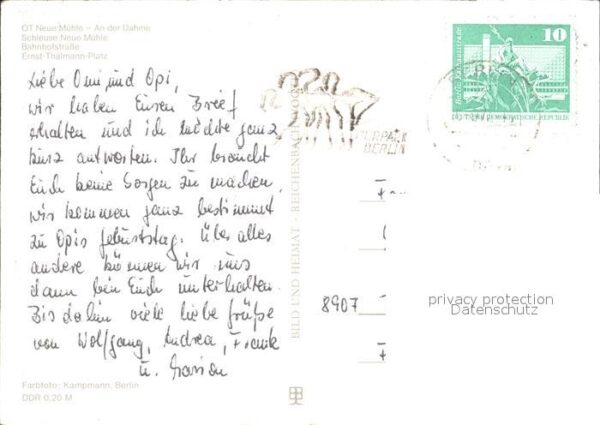 OT Neue Mühle – An der Dahme
Schleuse Neue Mühle
Bahnhofstraße
Ernst-Thälmann-Platz
Liebe Omi und Opi,
wir haben Euren Brief
erhalten und ich möchte ganz
kurz antworten. Ihr braucht
Euch keine Sorgen zu machen,
wir kommen ganz bestimmt
zu Opis Geburtstag. Über alles
andere können wir uns
dann bei Euch unterhalten.
Bis dahin viele liebe Grüße
von Wolfgang, Andrea, Frank
u. Marion
Farbfoto: Kampmann, Berlin
DDR 0,20 M
BILD UND HEIMAT · REICHENBACH
TIERPARK
BERLIN
10
Berlin, Rathausstraße
DEUTSCHE DEMOKRATISCHE REPUBLIK
8907
privacy protection
Datenschutz